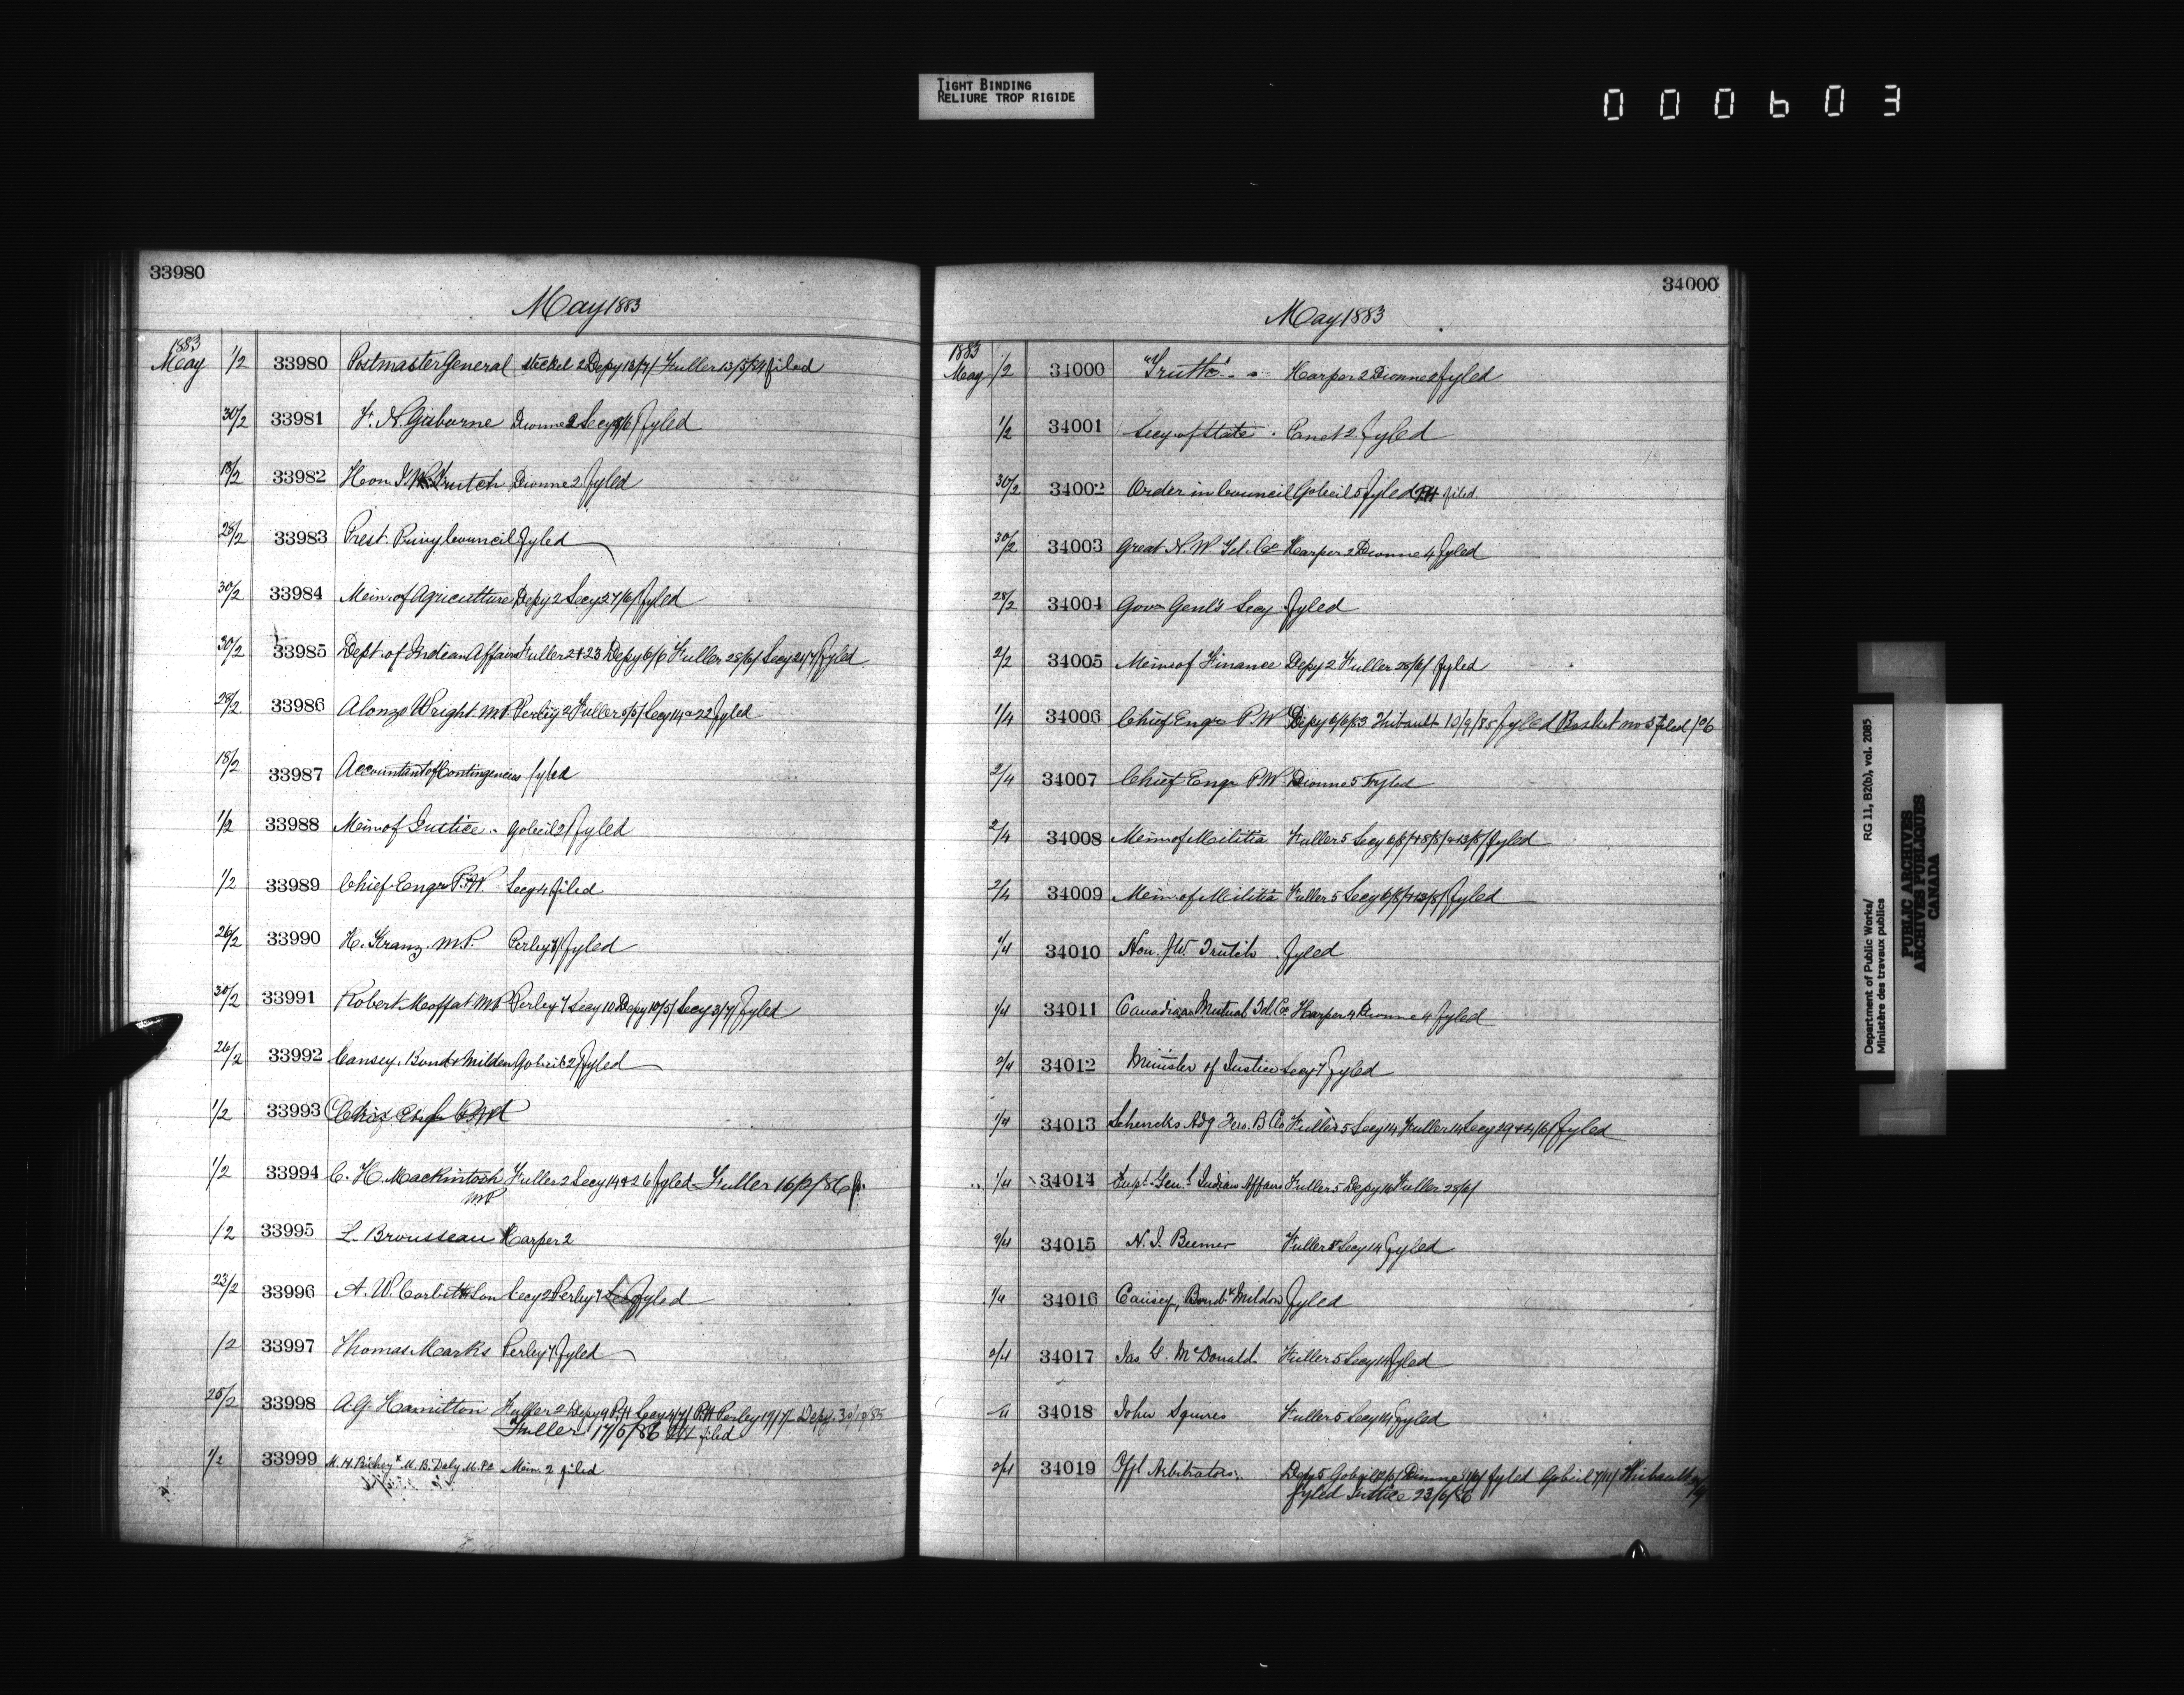 TIGHT BINDING
RELIURE TROP RIGIDE
000603
33980
May 1883
1883
May 1/2 33980 Postmaster General Steckel 2 Depy 13/7/ Fuller 13/5/84 filed
30/2 33981 F. N. Gisborne Dionne 2 Secy fyled
18/2 33982 Hon J W Trutch Dionne 2 fyled
28/2 33983 Prest. Privy Council fyled
30/2 33984 Min. of Agriculture Depy 2 Secy 27/6/ fyled
30/2 33985 Dept. of Indian Affairs Fuller 2 & 23 Depy 6/6 Fuller 28/6/ Secy 21/7/ fyled
28/2 33986 Alonzo Wright MP Perley 2 Fuller 5/5/ Secy 14 & 22 fyled
18/2 33987 Accountant of Contingencies fyled
1/2 33988 Min of Justice Gobeil 2 fyled
1/2 33989 Chief Engr P.W. Secy 4 filed
26/2 33990 H. Kranz. M.P. Perley fyled
30/2 33991 Robert Moffat MP Perley 7 Secy 10 Depy 10/5/ Secy 3/7/ fyled
26/2 33992 Causey, Bond & Milden Gobeil 2 fyled
1/2 33993 Chief Engr
1/2 33994 C. H. Mackintosh Fuller 2 Secy 14 & 26 fyled Fuller 16/2/86
MP
/2 33995 L. Brousseau Harper 2
23/2 33996 A. W. Corbitt & Son Secy 2 Perley 7 fyled
/2 33997 Thomas Marks Perley 7 fyled
25/2 33998 A G Hamilton Fuller 2 Depy 9 P.H. Secy 4/7/ P.H. Perley 19/7/ Depy. 30/12/85
Fuller 17/5/86 filed
1/2 33999 M. H. Richey & M. B. Daly M.Ps Min. 2 filed
34000
May 1883
1883
May 1/2 34000 "Truth" Harper 2 Dionne 2 fyled
1/2 34001 Secy. of State Canet 2 fyled
30/2 34002 Order in Council Gobeil 5 fyled PH filed
30/2 34003 Great N. W. Tel. Co Harper 2 Dionne 4 fyled
28/2 34004 Govr Genl's Secy fyled
2/2 34005 Min of Finance Depy 2 Fuller 28/6/ fyled
1/4 34006 Chief Engr P. W Depy 6/6/83 Thibault 10/9/85 fyled Basket no 5 filed
2/4 34007 Chief Engr P. W Dionne 5 Fyled
2/4 34008 Min of Militia Fuller 5 Secy 6/8/ & 8/8/ & 13/8/ fyled
2/4 34009 Min. of Militia Fuller 5 Secy 6/8/ & 13/8/ fyled
1/4 34010 Hon. J W. Trutch fyled
1/4 34011 Canadian Mutual Tel. Co Harper 4 Dionne 4 fyled
2/4 34012 Minister of Justice Secy 7 fyled
1/4 34013 Schencks Adg Fero. B Co Fuller 5 Secy 14 Fuller 14 Secy 29 & 4/6/ fyled
1/4 34014 Supt. Genl Indian Affairs Fuller 5 Depy 16 Fuller 28/6/
2/4 34015 N. J. Beemer Fuller 8 Secy 14 fyled
1/4 34016 Causey, Bond & Mildon fyled
2/4 34017 Jas G. McDonald Fuller 5 Secy 14 fyled
/4 34018 John Squires Fuller 5 Secy 14 fyled
2/4 34019 Offl Arbitrators Depy 5 Gobeil Dionne fyled Gobeil 7/11/ Thibault
fyled Justice 23/6/86
Department of Public Works/ RG 11, B2(b), vol. 2085
Ministère des travaux publics
PUBLIC ARCHIVES
ARCHIVES PUBLIQUES
CANADA